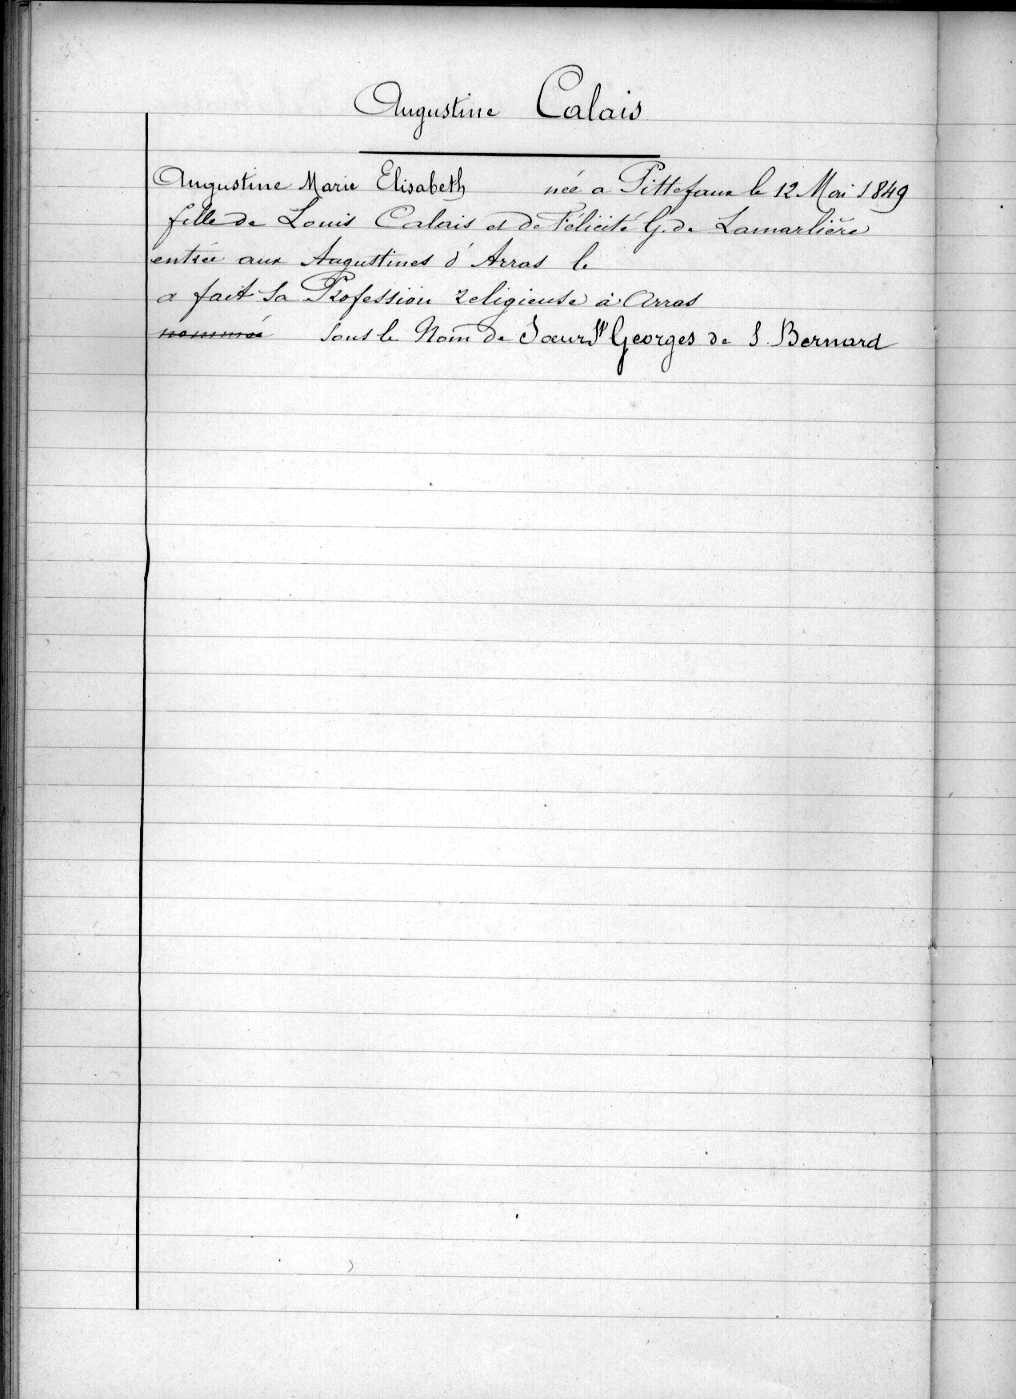 Augustine Calais
Augustine Marie Elisabeth née a Pittefaux le 12 Mai 1849
fille de Louis Calais et de Félicité G. de Lamarlière
entrée aux Augustines d'Arras le
a fait sa Profession religieuse à Arras
nommée sous le Nom de Soeur St Georges de S. Bernard